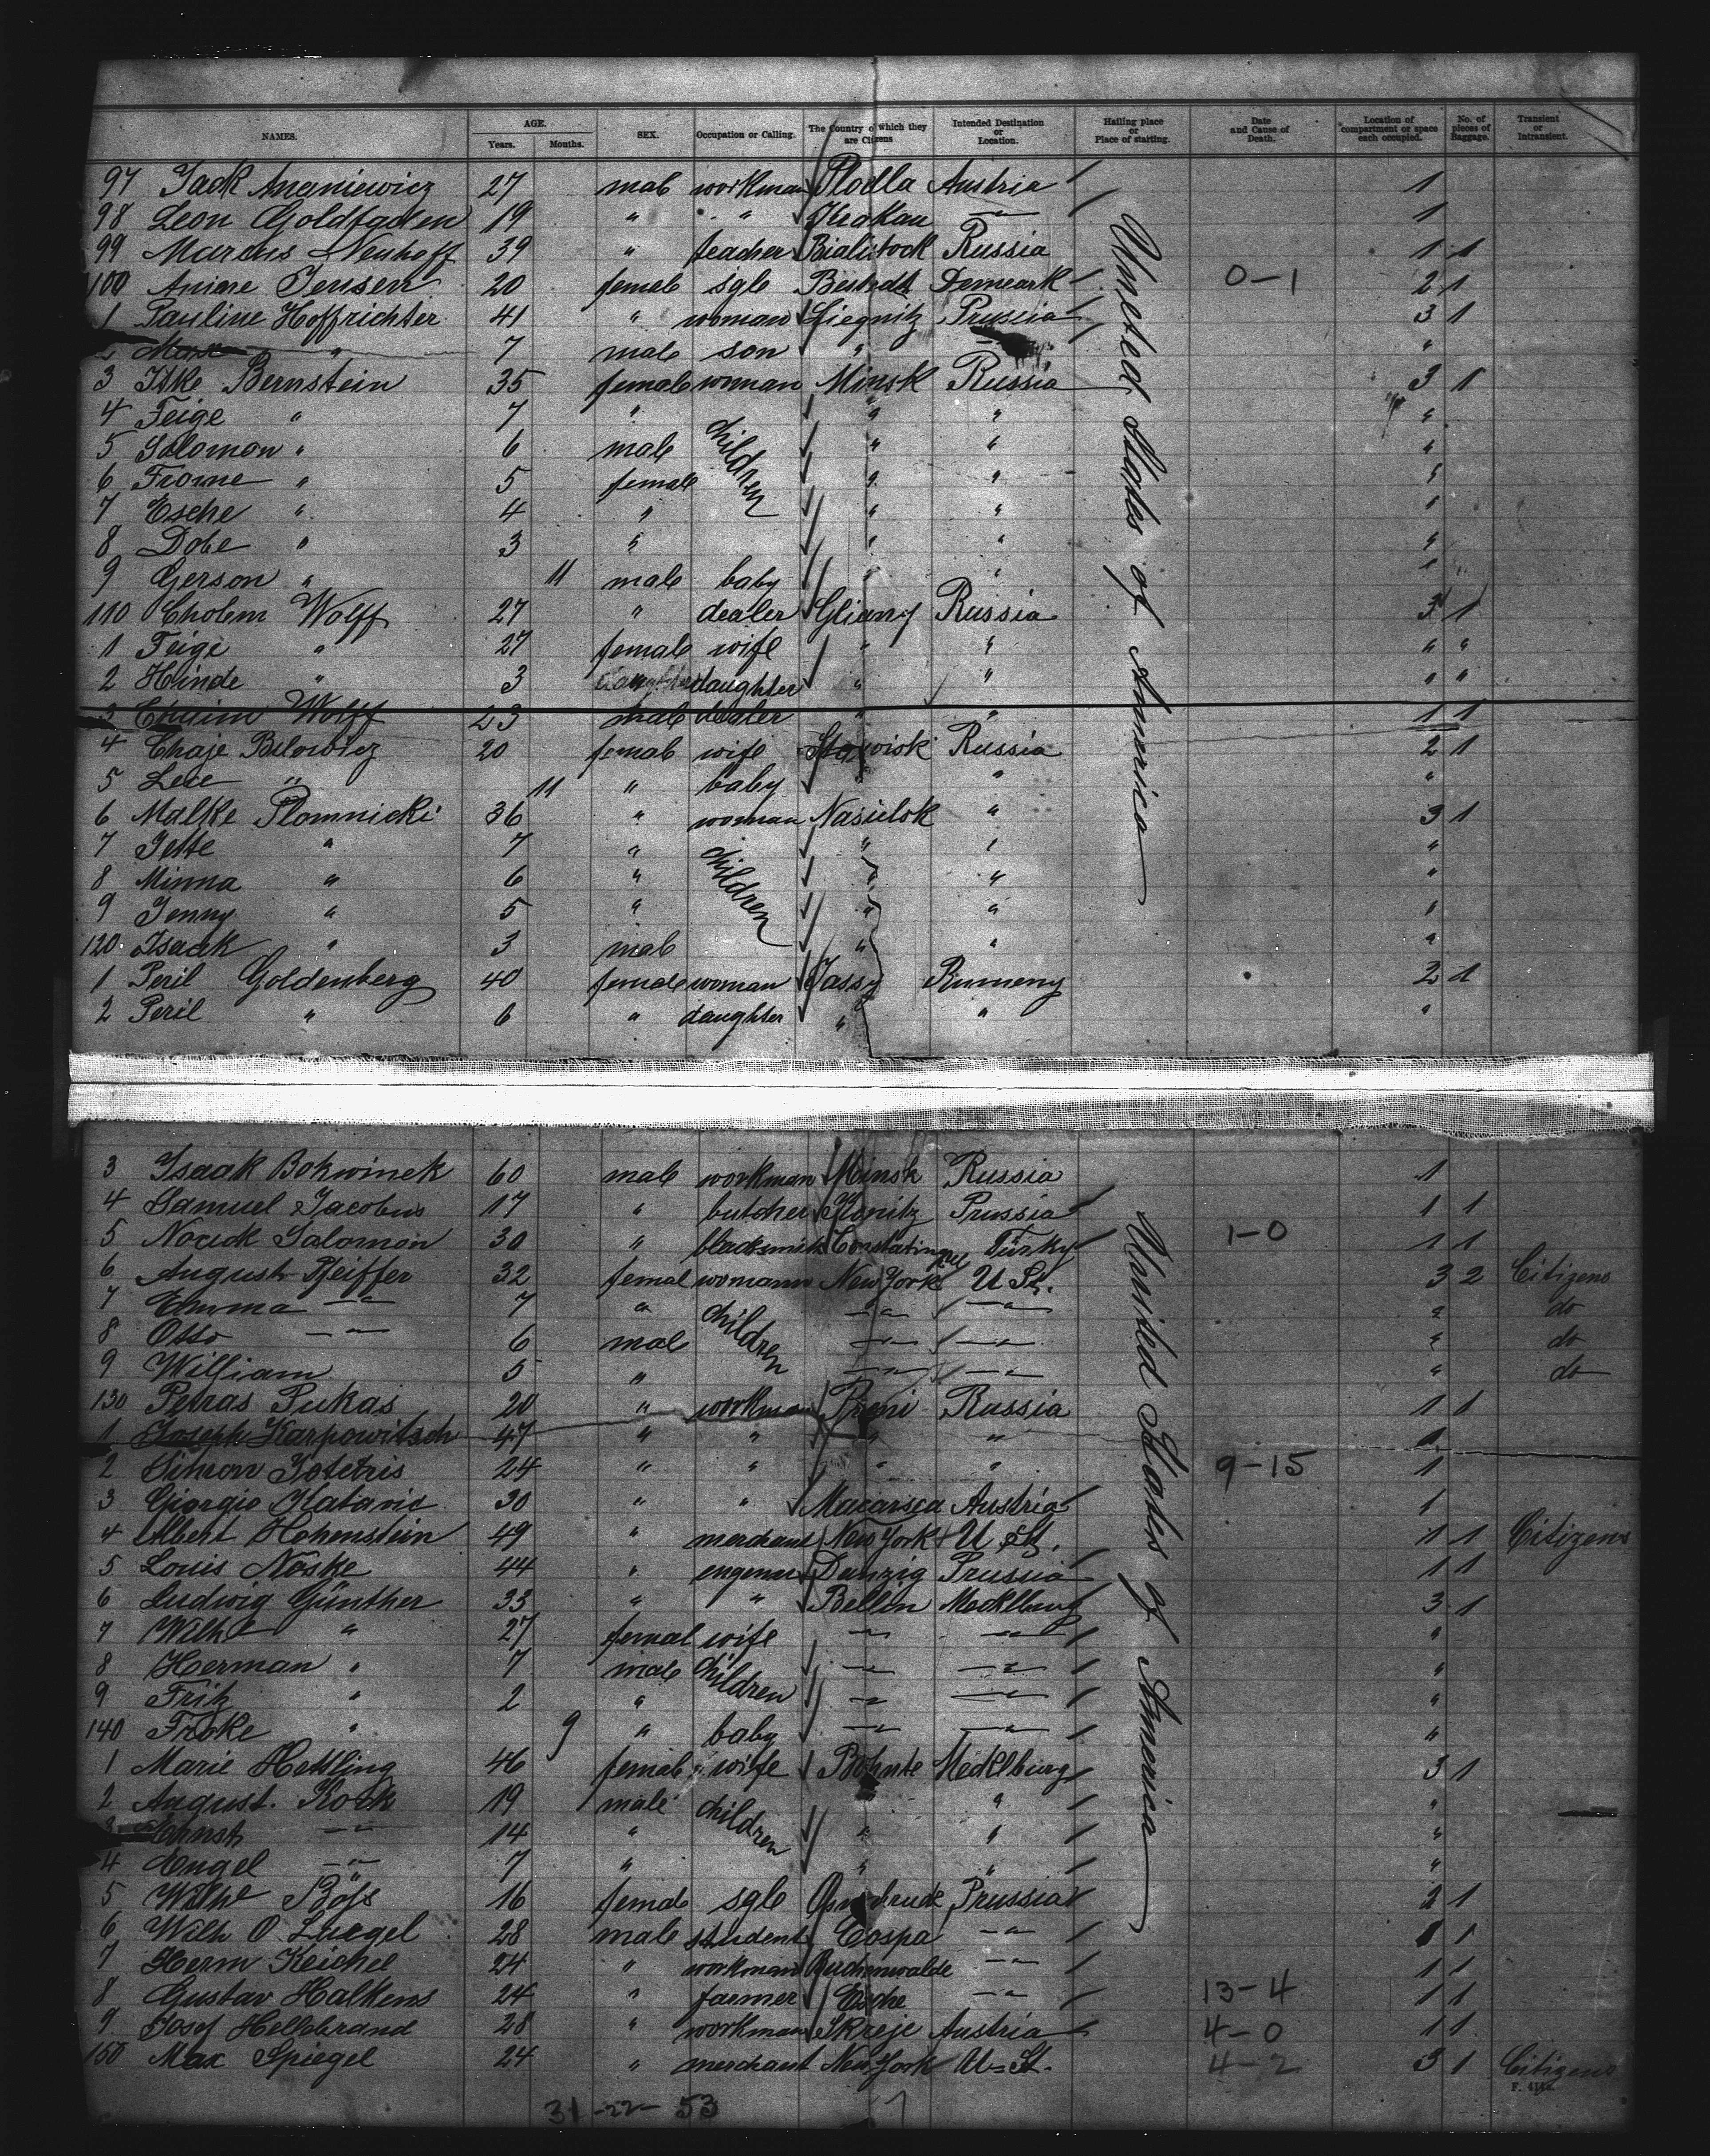 NAMES. AGE. Years. Months. SEX. Occupation or Calling. The Country of which they are Citizens Intended Destination or Location. Hailing place or Place of starting. Date and Cause of Death. Location of compartment or space each occupied. No. of pieces of Baggage. Transient or Intransient.
97 Jack Ananiewicz 27 male workman Austria 1
98 Leon Goldfaden 19 " " Krakau —"— 1
99 Marcus Neuhoff 39 " teacher Bialistock Russia 1 1
100 Jensen 20 female sgle Denmark 0-1 2 1
1 Pauline Hoffrichter 41 " woman Liegnitz Prussia 3 1
2 Max " 7 male son " "
3 Itke Bernstein 35 female woman Minsk Russia 3 1
4 Feige " 7 " children " " "
5 Solomon " 6 male " " "
6 Frome " 5 female " " "
7 Esche " 4 " " " "
8 Dobe " 3 " " " "
9 Gerson " 11 male baby " " "
110 Cholem Wolff 27 " dealer Russia 3 1
1 Feige " 27 female wife " " " "
2 Hinde " 3 daughter " " " "
3 Chaim Wolff 23 male dealer " " 1 1
4 Chaje 20 female wife Stawisk Russia 2 1
5 " 11 " baby " " "
6 Malke Plomnicki 36 " woman Nasielsk " 3 1
7 Jette " 7 " children " " "
8 Minna " 6 " " " "
9 Jenny " 5 " " " "
120 Isaak " 3 male " " "
1 Peril Goldenberg 40 female woman Jassy Rumeny 2 1
2 Peril " 6 " daughter " " "
United States of America
3 Isaak Bokwinek 60 male workman Minsk Russia 1
4 Samuel Jacobus 17 " butcher Konitz Prussia 1 1
5 Salomon 30 " blacksmith Constatinopel Türky 1-0 1 1
6 August Pfeiffer 32 femal womann New York U St. 3 2 Citizens
7 Emma —"— 7 " children —"— —"— " do
8 Otto —"— 6 male —"— —"— " do
9 William 5 " —"— —"— " do
130 Petras Pukas 20 " workman Preni Russia 1 1
1 Joseph Karpowitsch 47 " " " " 1
2 Simon 24 " " " " 9-15 1
3 Giorgio Katavic 30 " " Macarsca Austria 1
4 Albert Hohenstein 49 " merchant New York U St. 1 1 Citizens
5 Louis Noske 44 " engeneer Danzig Prussia 1 1
6 Ludwig Günther 33 " " Bellin Mecklburg 3 1
7 Wilhe " 27 femal wife —"— —"— "
8 Herman " 7 male children —"— —"— "
9 Fritz " 2 " —"— —"— "
140 " 9 " baby —"— —"— "
1 Marie Hettling 46 female wife Mecklburg 3 1
2 August. Kock 19 male children " " "
3 Ernst —"— 14 " " " "
4 Engel —"— 7 " " " "
5 Wilhe 16 female sgle Osnabruck Prussia 2 1
6 Wilh O 28 male student Cospa —"— 1 1
7 Herm Reichel 24 " workman Buchenwalde —"— 1 1
8 Gustav Halkens 24 " farmer —"— 13-4 1 1
9 Josef Hellebrand 28 " workman Skreje Austria 4-0 1 1
150 Max Spiegel 24 " merchant New York U-St. 4-2 3 1 Citizens
United States of America
31-22- 53